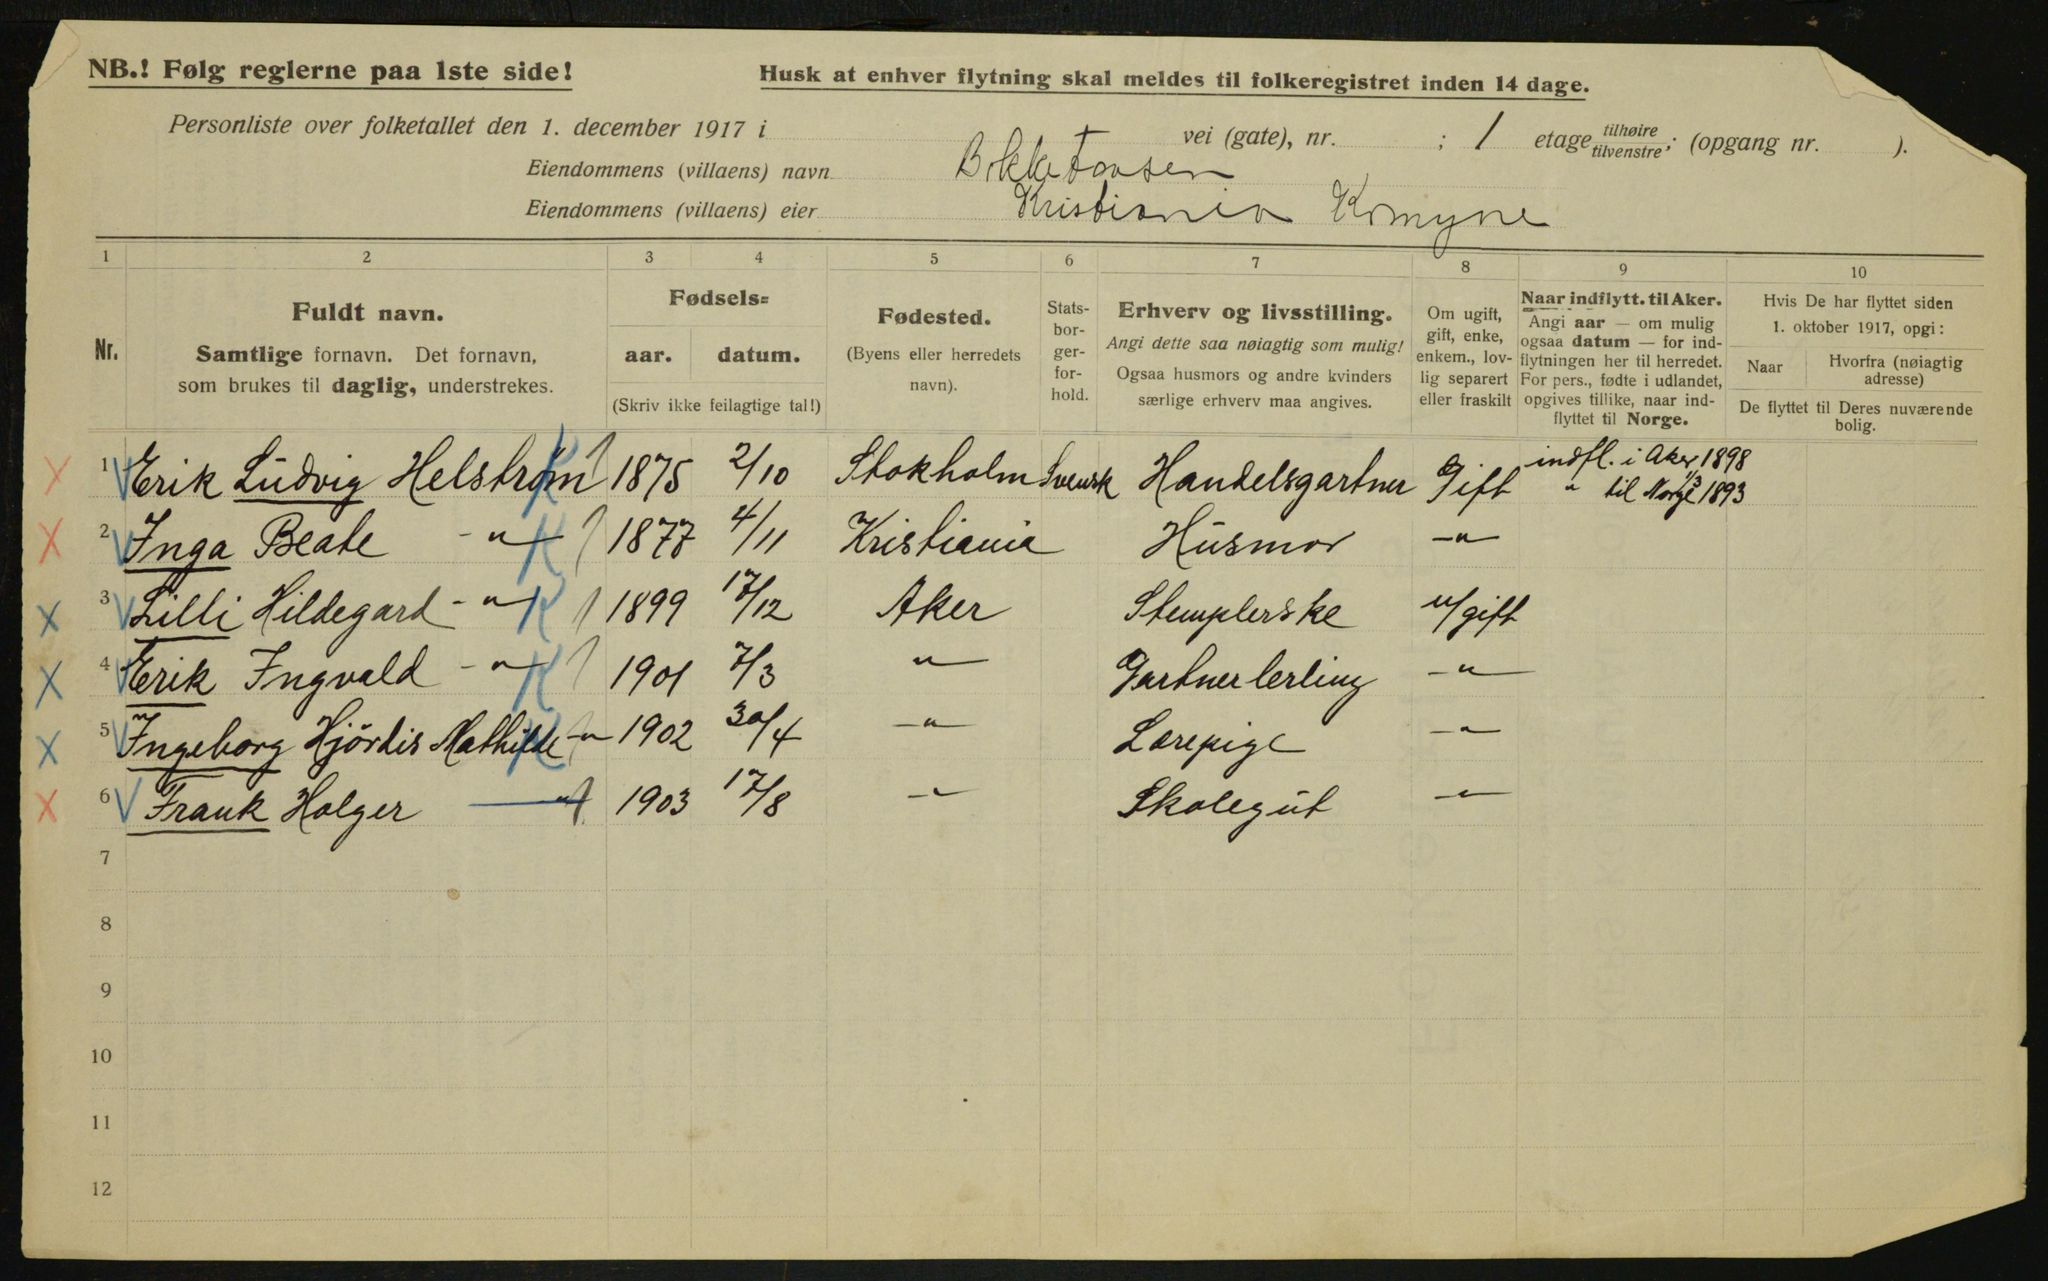 NB.! Følg reglerne paa 1ste side!
Husk at enhver flytning skal meldes til folkeregistret inden 14 dage.
Personliste over folketallet den 1. december 1917 i vei (gate), nr. ; 1 etage tilhøire tilvenstre; (opgang nr. ).
Eiendommens (villaens) navn
Eiendommens (villaens) eier Kristiania Komyne
1 2 3 4 5 6 7 8 9 10
Nr.
Fuldt navn.
Samtlige fornavn. Det fornavn,
som brukes til daglig, understrekes.
Fødsels=
aar. datum.
(Skriv ikke feilagtige tal!)
Fødested.
(Byens eller herredets
navn).
Stats-
bor-
ger-
for-
hold.
Erhverv og livsstilling.
Angi dette saa nøiagtig som mulig!
Ogsaa husmors og andre kvinders
særlige erhverv maa angives.
Om ugift,
gift, enke,
enkem., lov-
lig separert
eller fraskilt
Naar indflytt. til Aker.
Angi aar — om mulig
ogsaa datum — for ind-
flytningen her til herredet.
For pers., fødte i udlandet,
opgives tillike, naar ind-
flyttet til Norge.
Hvis De har flyttet siden
1. oktober 1917, opgi:
Naar
Hvorfra (nøiagtig
adresse)
De flyttet til Deres nuværende
bolig.
1 Erik Ludvig Helstrøm 1875 2/10 Stokholm Svensk Handelsgartner Gift indfl. i Aker 1898
" til Norge 1893
2 Inga Beate -"- 1877 4/11 Kristiania Husmor -"-
3 Lilli Hildegard -"- 1899 17/12 Aker Stemplerske u/gift
4 Erik Ingvald -"- 1901 7/3 -"- Gartnerlerling -"-
5 Ingeborg Hjördis Mathilde -"- 1902 30/4 -"- Lærepige -"-
6 Frank Holger -"- 1903 17/8 -"- Skolegut -"-
7
8
9
10
11
12